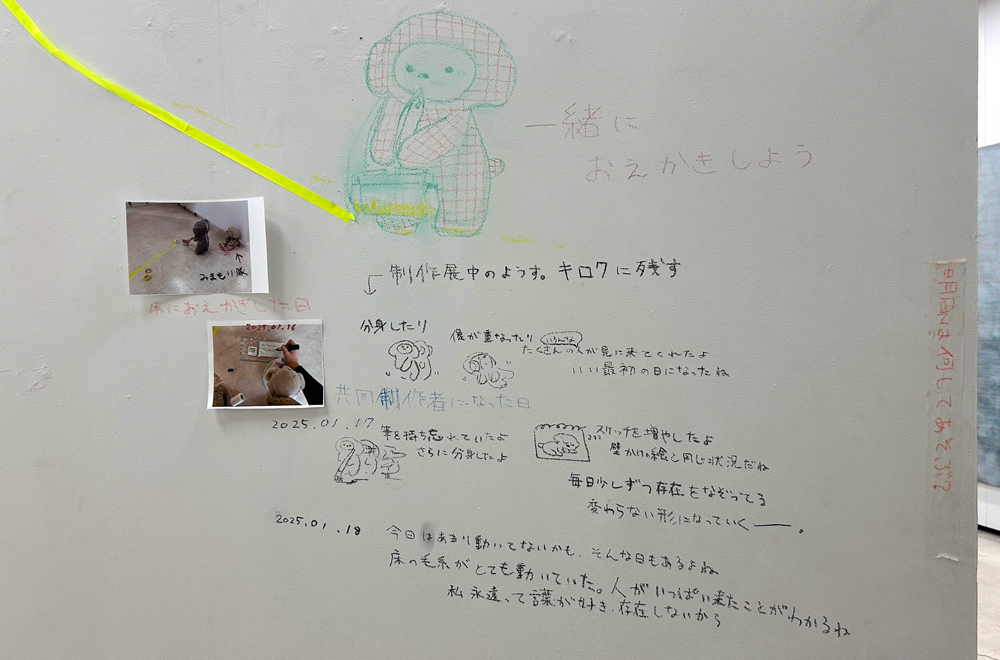 一緒に
おえかきしよう
みまもり隊
床におえかきした日
制作展中のようす。キロクに残す
2025.01.16
分身したり
僕が重なったり
いろんな
たくさんの人が見に来てくれたよ
いい最初の日になったね
共同制作者になった日
2025.01.17
筆を持ち忘れていたよ
さらに分身したよ
スケッチを増やしたよ
壁かけの絵と同じ状況だね
毎日少しずつ存在をなぞってる
変わらない形になっていく――。
2025.01.18
今日はあまり動いてないかも、そんな日もあるよね
床の毛糸がとても動いていた。人がいっぱい来たことがわかるね
私永遠って言葉が好き、存在しないから
何してあそぶ?